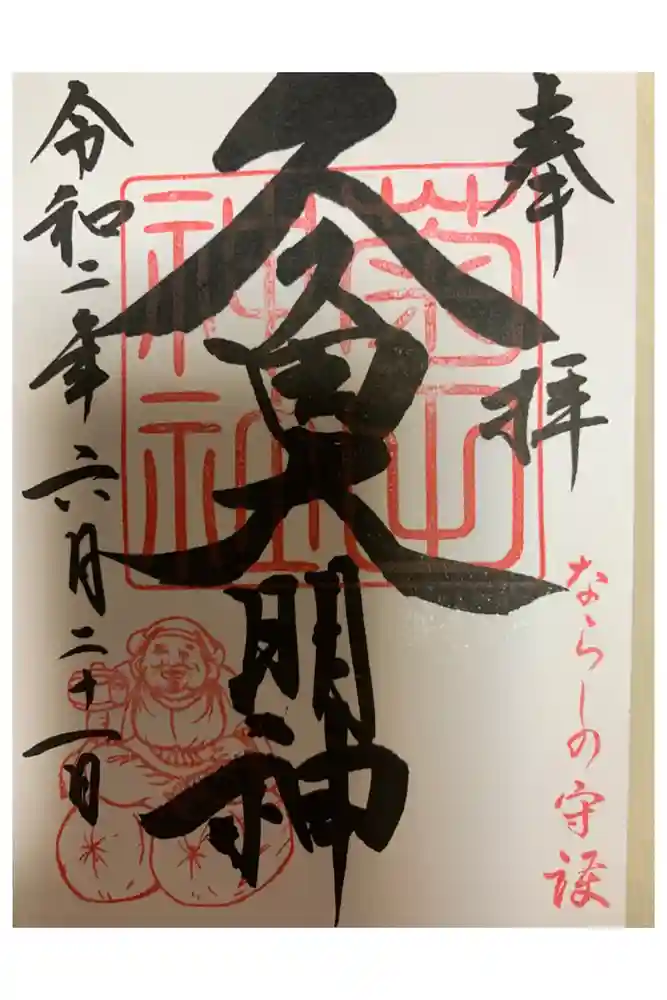 奉拝
ならしの守護
久久田大明神
菊田神社
令和二年六月二十一日